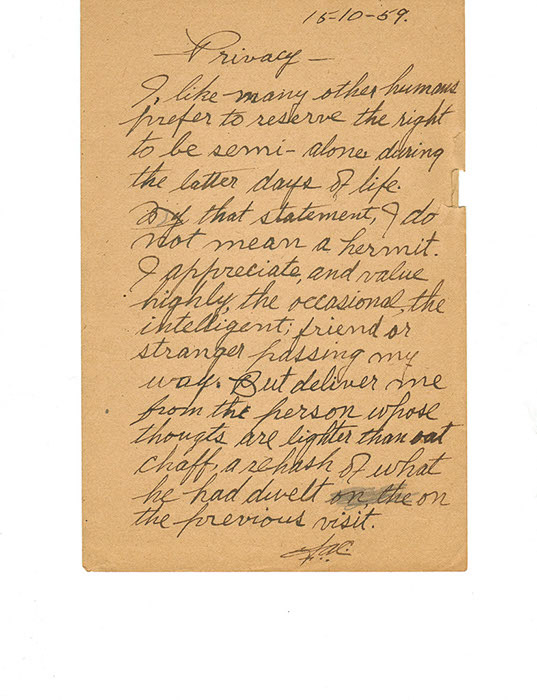 15-10-59.
— Privacy —
I, like many other humans
prefer to reserve the right
to be semi-alone during
the latter days of life.
By that statement, I do
not mean a hermit.
I appreciate, and value
highly, the occasional, the
intelligent, friend or
stranger passing my
way. But deliver me
from the person whose
thougts are lighter than oat
chaff, a rehash of what
he had dwelt on the on
the previous visit.